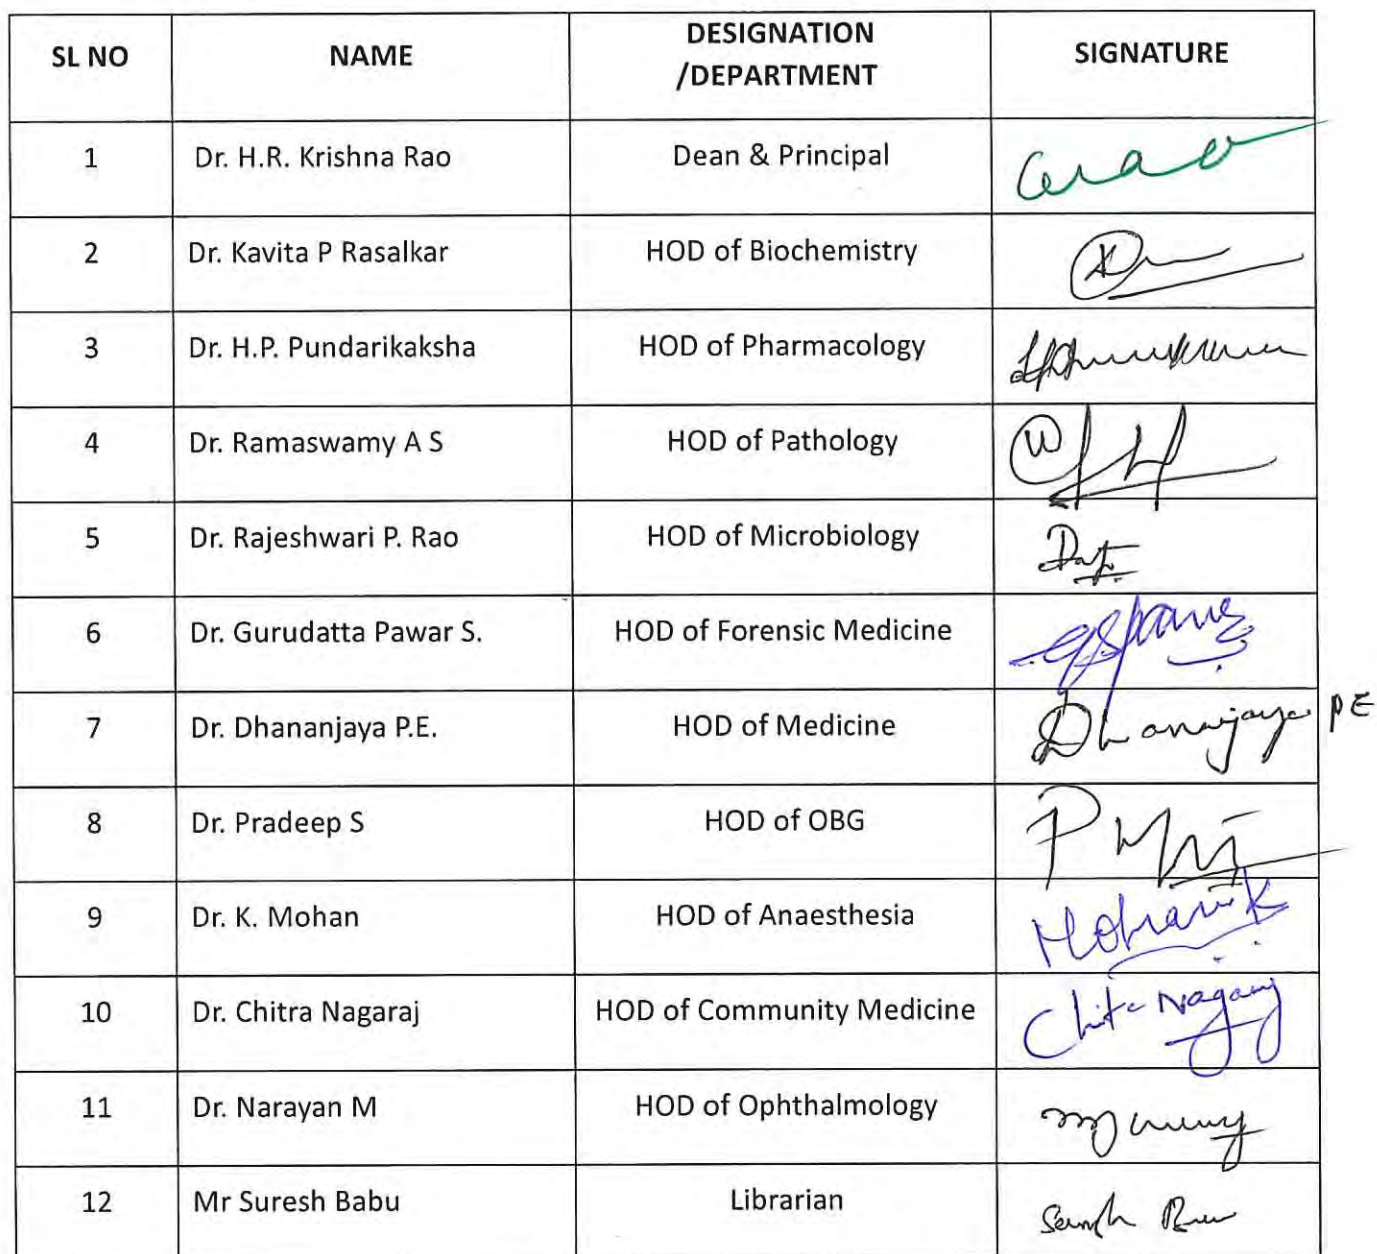 SL NO NAME DESIGNATION /DEPARTMENT SIGNATURE
1 Dr. H.R. Krishna Rao Dean & Principal
2 Dr. Kavita P Rasalkar HOD of Biochemistry
3 Dr. H.P. Pundarikaksha HOD of Pharmacology
4 Dr. Ramaswamy A S HOD of Pathology
5 Dr. Rajeshwari P. Rao HOD of Microbiology
6 Dr. Gurudatta Pawar S. HOD of Forensic Medicine
7 Dr. Dhananjaya P.E. HOD of Medicine Dhananjaya PE
8 Dr. Pradeep S HOD of OBG
9 Dr. K. Mohan HOD of Anaesthesia Mohan K
10 Dr. Chitra Nagaraj HOD of Community Medicine Chitra Nagaraj
11 Dr. Narayan M HOD of Ophthalmology
12 Mr Suresh Babu Librarian